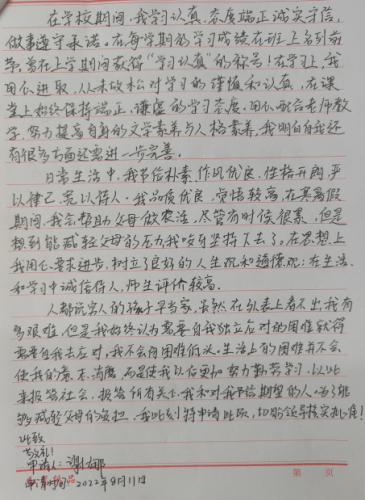 在学校期间,我学习认真,态度端正诚实守信,
做事遵守承诺。在每学期的学习成绩在班上名列前
茅,曾在上学期间获得“学习认真”的称号!在学习上,我
用心进取,从未放松对学习的谨慎和认真,在课
堂上始终保持端正,谦虚的学习态度,用心配合老师教
学,努力提高自身的文学素养与人格素养,我明白自我还
有很多方面还需进一步完善。
日常生活中,我节俭朴素,作风优良,性格开朗,严
以律己,宽以待人,我品质优良,觉悟较高,在寒暑假
期间,我会帮助父母做农活,尽管有时候很累,但是
想到能减轻父母的压力我咬牙坚持下去了。在思想上
我用心要求进步,树立了良好的人生观和道德观;在生活
和学习中诚信待人,师生评价较高。
人都说穷人的孩子早当家,虽然在外表上看不出我有
多艰难,但是我始终认为需要自我独立应对的困难就得
需要自我去应对,我不会向困难低头。生活上的困难并不会
使我的意志消磨,而是使我以后更加努力勤劳学习,以此
来报答社会,报答所有关心我和对我节俭期望的人。为了能
够减轻父母的负担,我此刻特申请此项,切盼领导核实批准!
此致
敬礼!
申请人:谢娜
申请时间:2022年9月11日
第 页